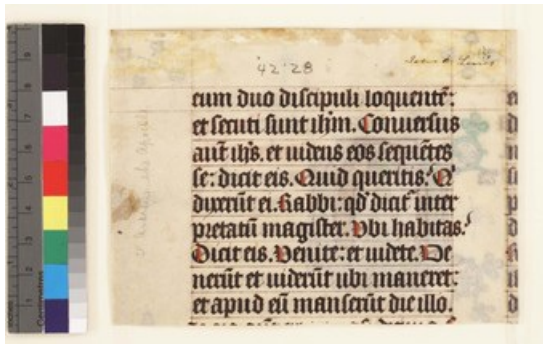 42·28
eum duo discipuli loquentē:
et secuti sunt ihm̄. Conuersus
aūt ihs̄. et uidens eos sequētes
se: dicit eis. Quid queritis? Q͛
dixerūt ei. Rabbi: qd̄ dicit͛ inter
pretatū magister. Vbi habitas?
Dicit eis. Venite: et uidete. Ve
nerūt et uiderūt ubi maneret:
et apud eū manserūt die illo.